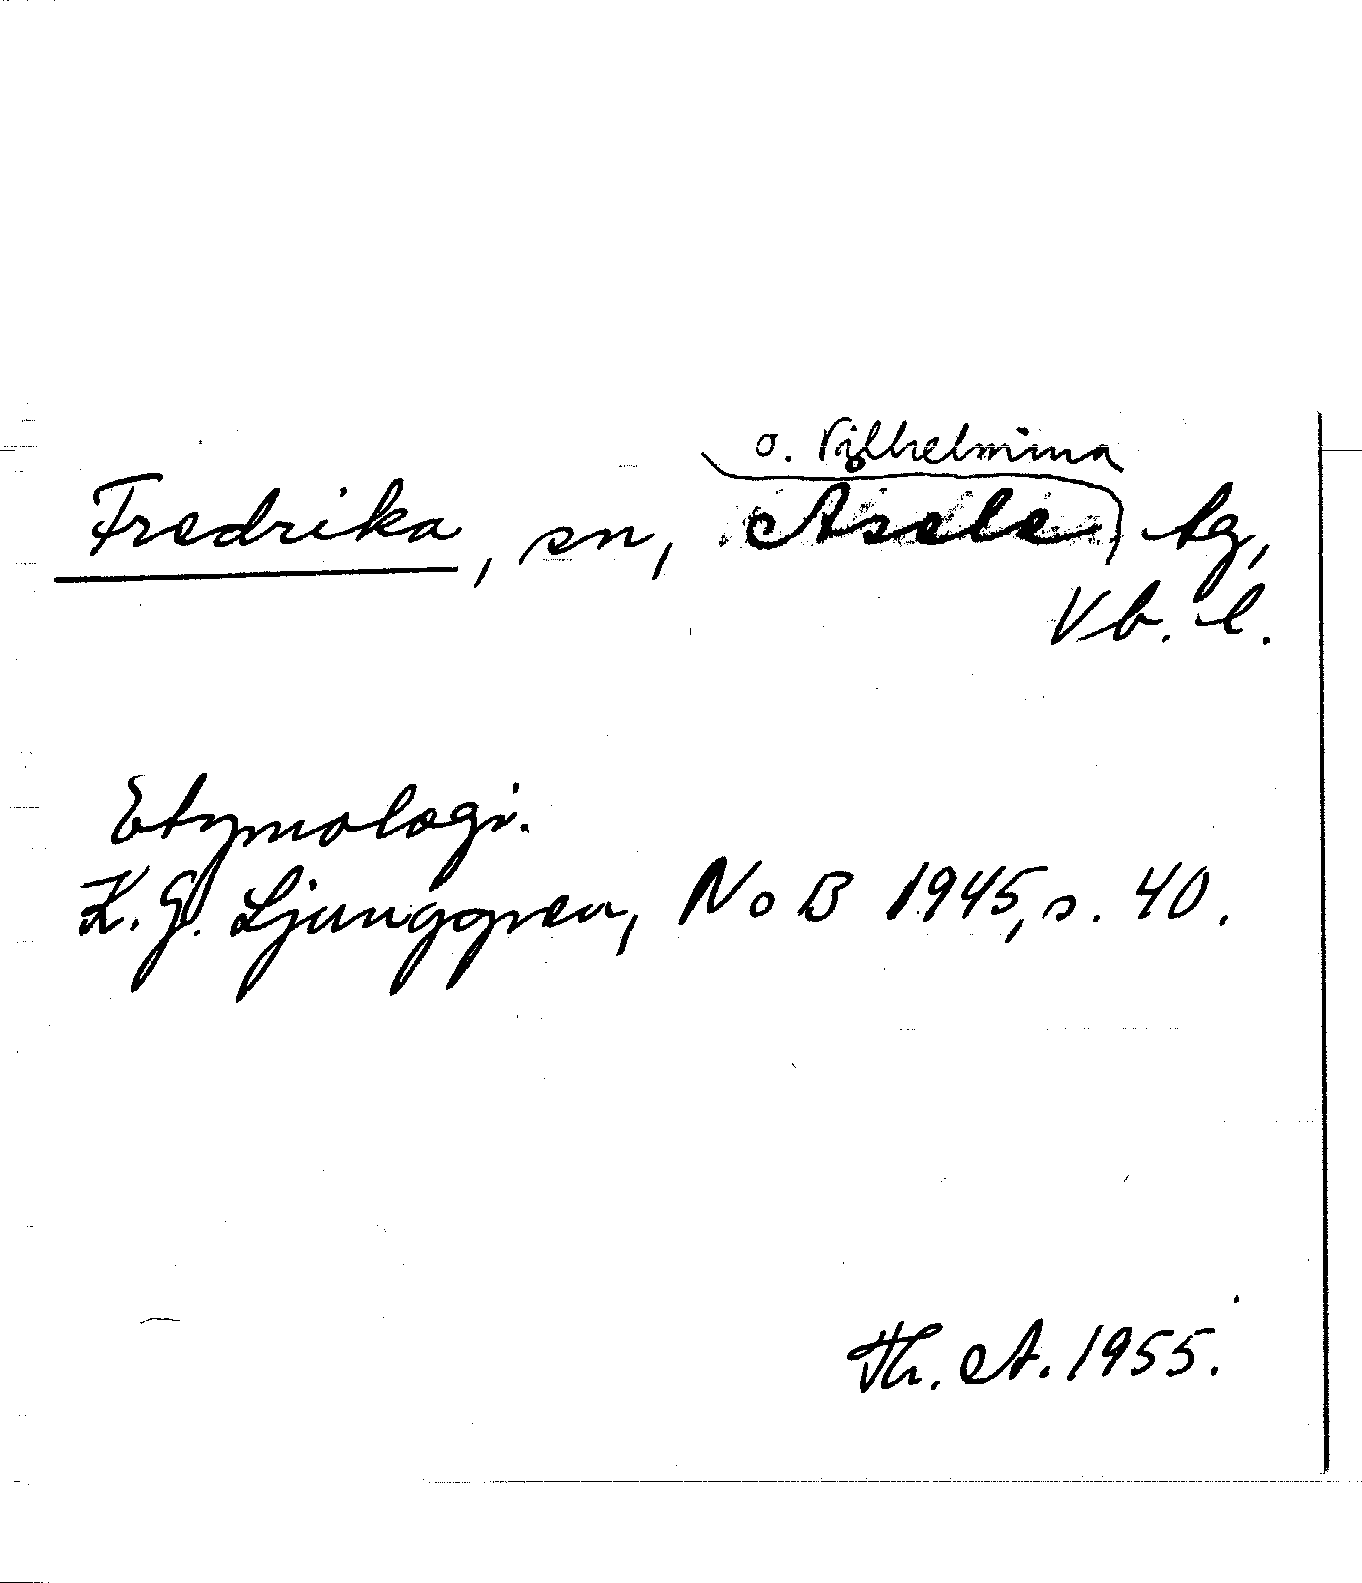 o. Vilhelmina
Fredrika, sn, Åsele tg,
Vb. l.
Etymologi.
K. G. Ljunggren, NoB 1945, s. 40.
Th. A. 1955.